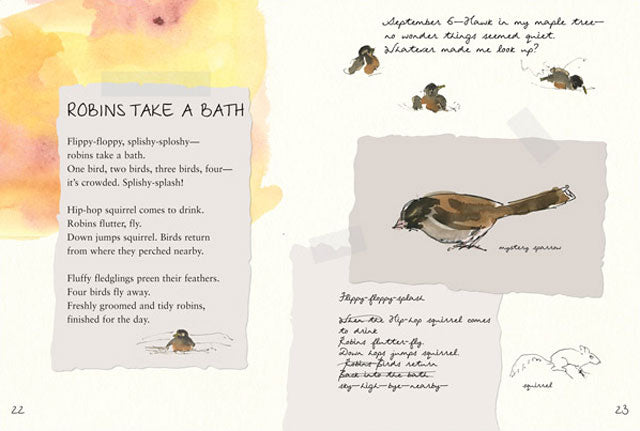 ROBINS TAKE A BATH
Flippy-floppy, splishy-sploshy—
robins take a bath.
One bird, two birds, three birds, four—
it's crowded. Splishy-splash!
Hip-hop squirrel comes to drink.
Robins flutter, fly.
Down jumps squirrel. Birds return
from where they perched nearby.
Fluffy fledglings preen their feathers.
Four birds fly away.
Freshly groomed and tidy robins,
finished for the day.
22
September 6—Hawk in my maple tree—
no wonder things seemed quiet.
Whatever made me look up?
mystery sparrow
Flippy-floppy-splash
When the Hip-hop squirrel comes
to drink
Robins flutter-fly.
Down hops jumps squirrel.
Robins Birds return
Back into the bath
sky—high—bye—nearby—
squirrel
23